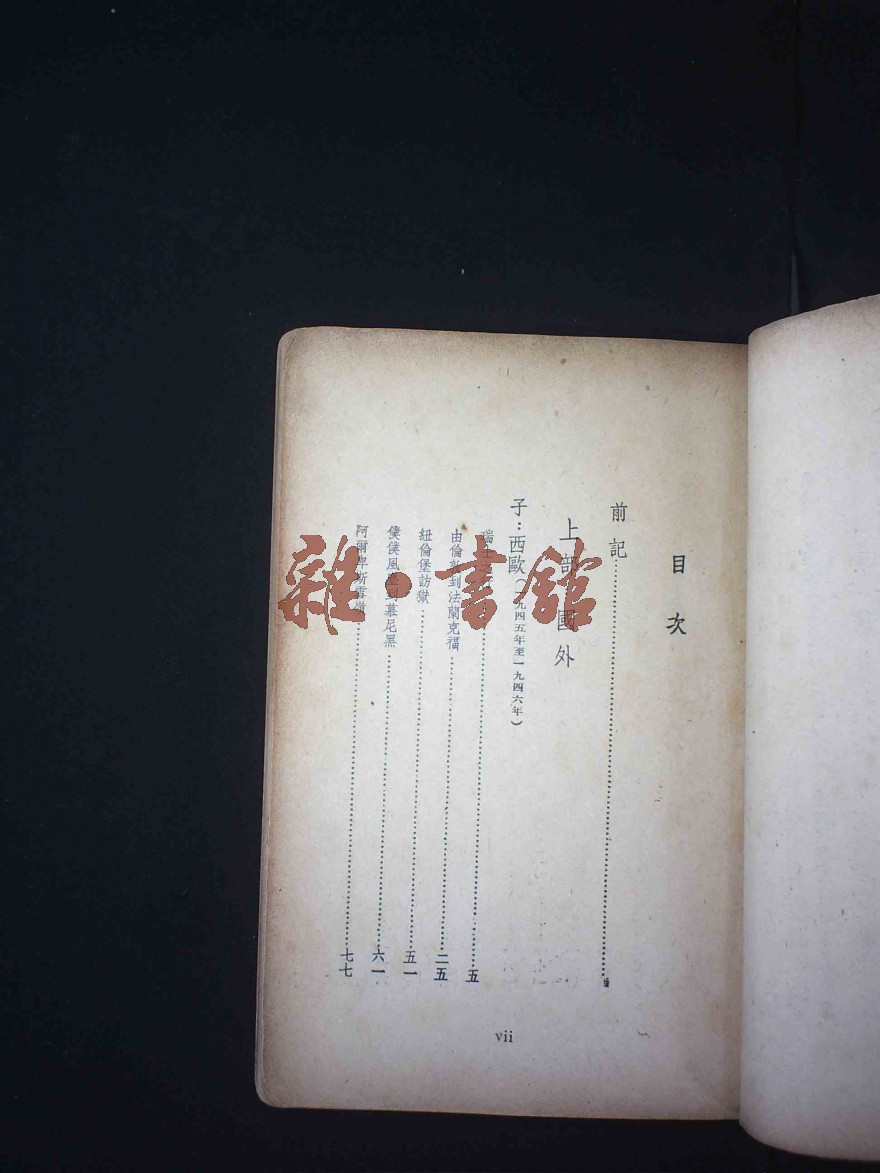 目次
前記
上部 國外
子：西歐（一九四五年至一九四六年）
瑞士之行五
由倫敦到法蘭克福二五
紐倫堡訪獄五一
僕僕風塵到慕尼黑六一
阿爾卑斯雪嶺七七
vii
雜·書館